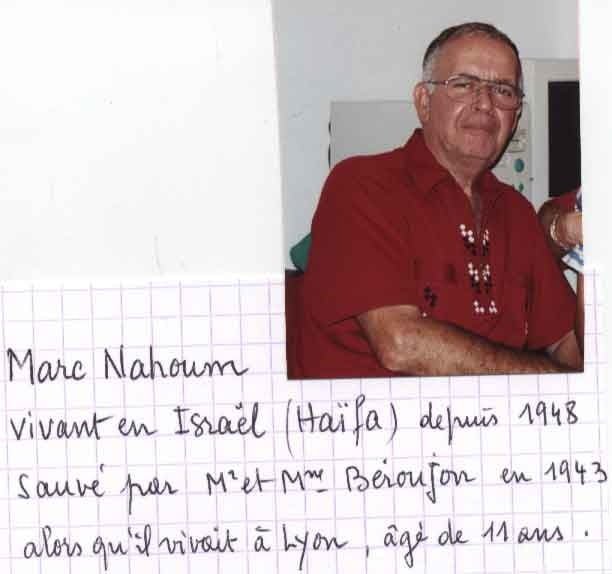 Marc Nahoum
vivant en Israël (Haïfa) depuis 1948
Sauvé par Mr et Mme Béroujon en 1943
alors qu'il vivait à Lyon, âgé de 11 ans.